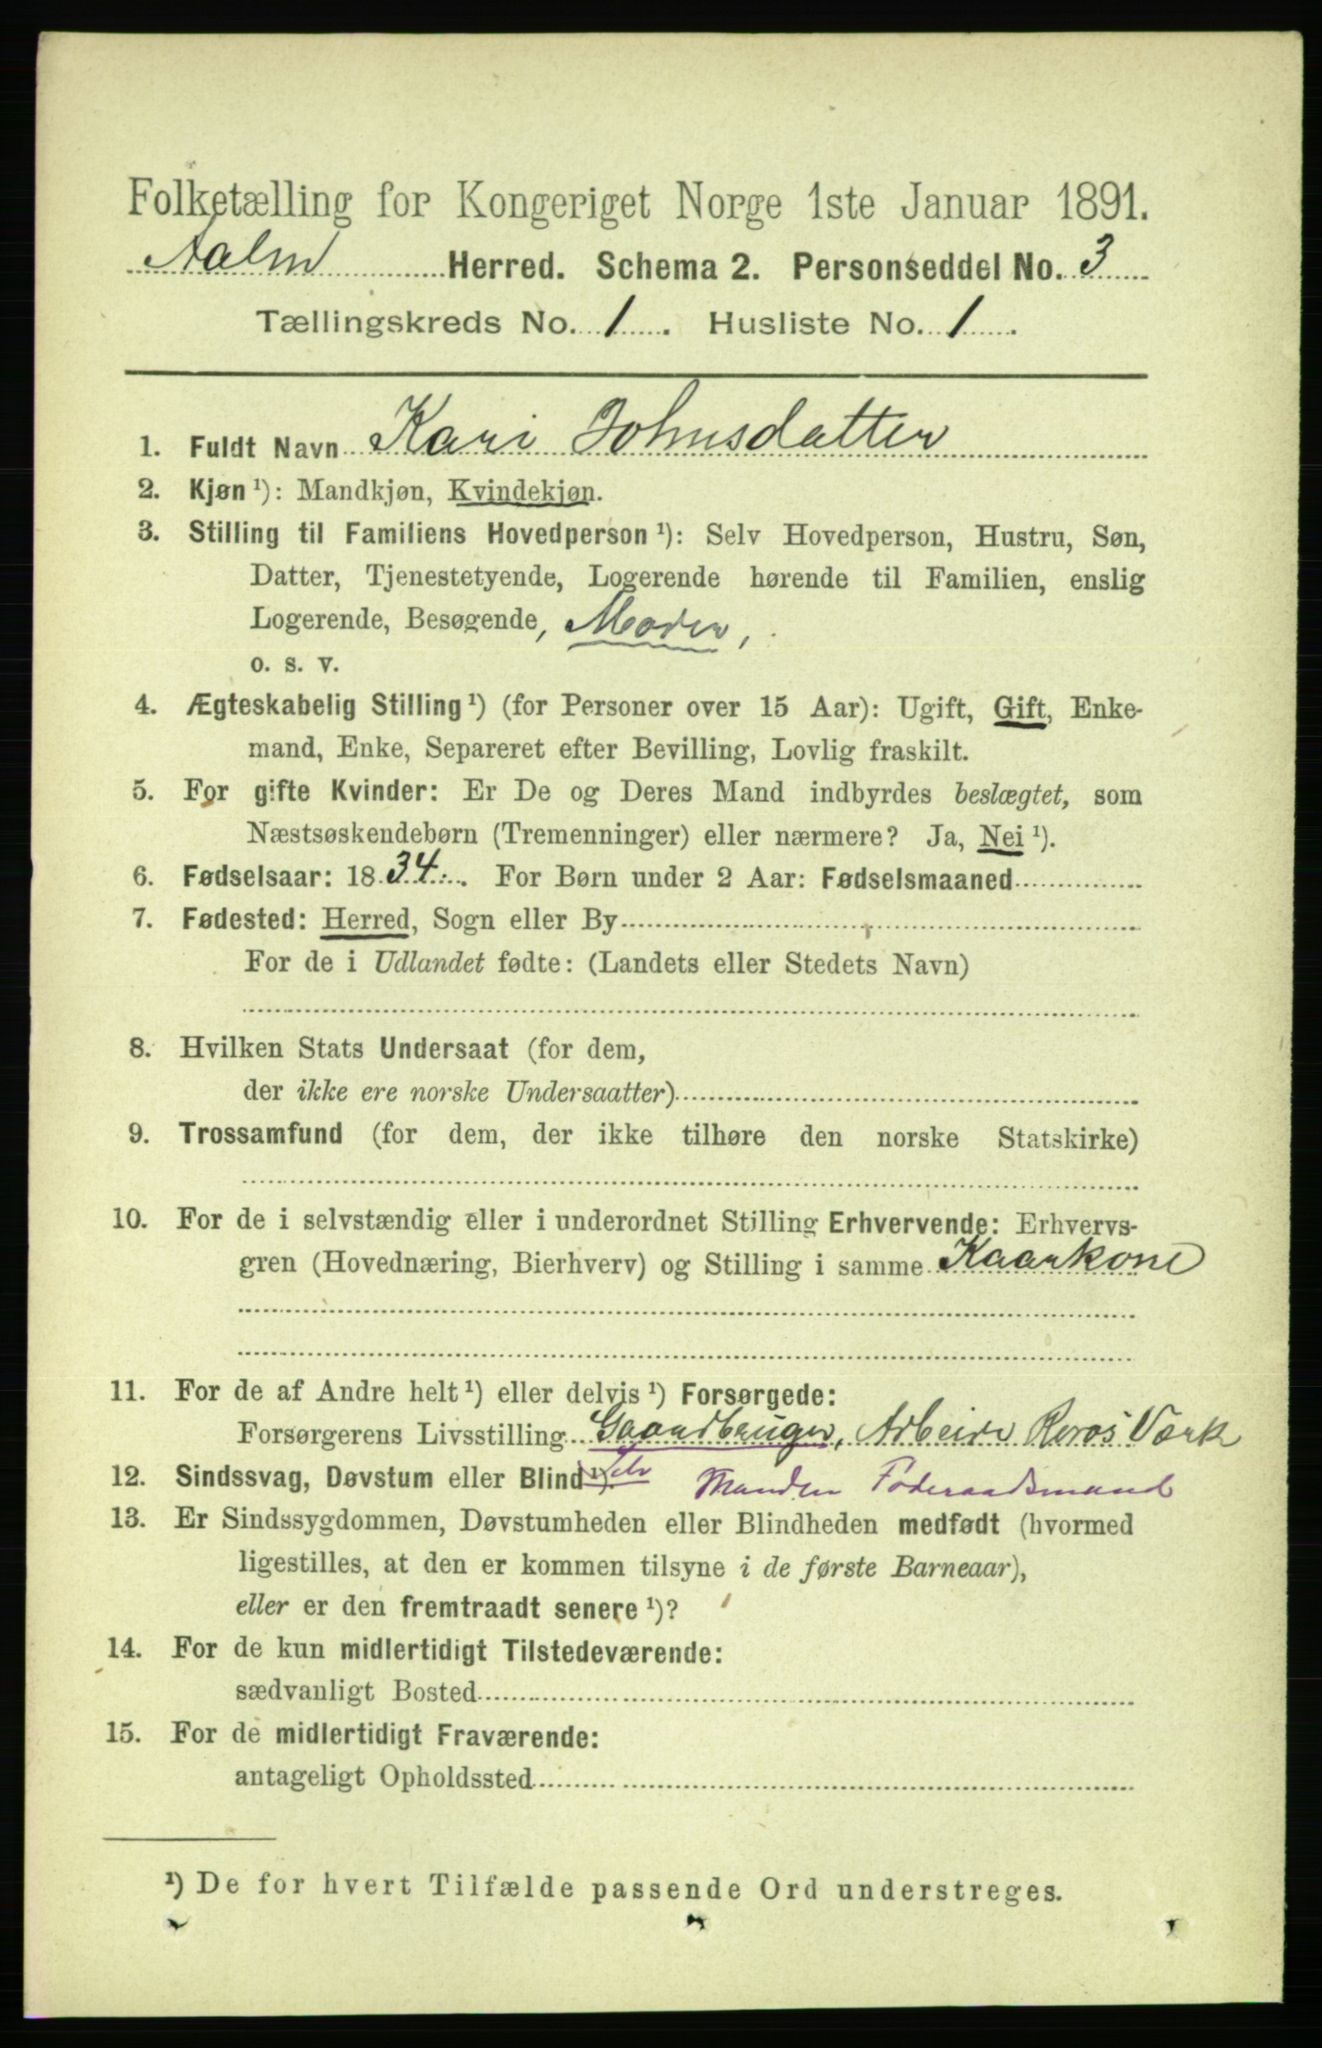 Folketælling for Kongeriget Norge 1ste Januar 1891.
Aalen Herred. Schema 2. Personseddel No. 3
Tællingskreds No. 1. Husliste No. 1.
1. Fuldt Navn Kari Johnsdatter
2. Kjøn ¹): Mandkjøn, Kvindekjøn.
3. Stilling til Familiens Hovedperson ¹): Selv Hovedperson, Hustru, Søn,
Datter, Tjenestetyende, Logerende hørende til Familien, enslig
Logerende, Besøgende, Moder,
o. s. v.
4. Ægteskabelig Stilling ¹) (for Personer over 15 Aar): Ugift, Gift, Enke-
mand, Enke, Separeret efter Bevilling, Lovlig fraskilt.
5. For gifte Kvinder: Er De og Deres Mand indbyrdes beslægtet, som
Næstsøskendebørn (Tremenninger) eller nærmere? Ja, Nei ¹).
6. Fødselsaar: 1834. For Børn under 2 Aar: Fødselsmaaned
7. Fødested: Herred, Sogn eller By
For de i Udlandet fødte: (Landets eller Stedets Navn)
8. Hvilken Stats Undersaat (for dem,
der ikke ere norske Undersaatter)
9. Trossamfund (for dem, der ikke tilhøre den norske Statskirke)
10. For de i selvstændig eller i underordnet Stilling Erhvervende: Erhvervs-
gren (Hovednæring, Bierhverv) og Stilling i samme Kaarkone
11. For de af Andre helt ¹) eller delvis ¹) Forsørgede:
Forsørgerens Livsstilling Gaardbruger, Arbeide Røros Værk
12. Sindssvag, Døvstum eller Blind ¹). Manden Føderaadsmand
13. Er Sindssygdommen, Døvstumheden eller Blindheden medfødt (hvormed
ligestilles, at den er kommen tilsyne i de første Barneaar),
eller er den fremtraadt senere ¹)?
14. For de kun midlertidigt Tilstedeværende:
sædvanligt Bosted
15. For de midlertidigt Fraværende:
antageligt Opholdssted
¹) De for hvert Tilfælde passende Ord understreges.